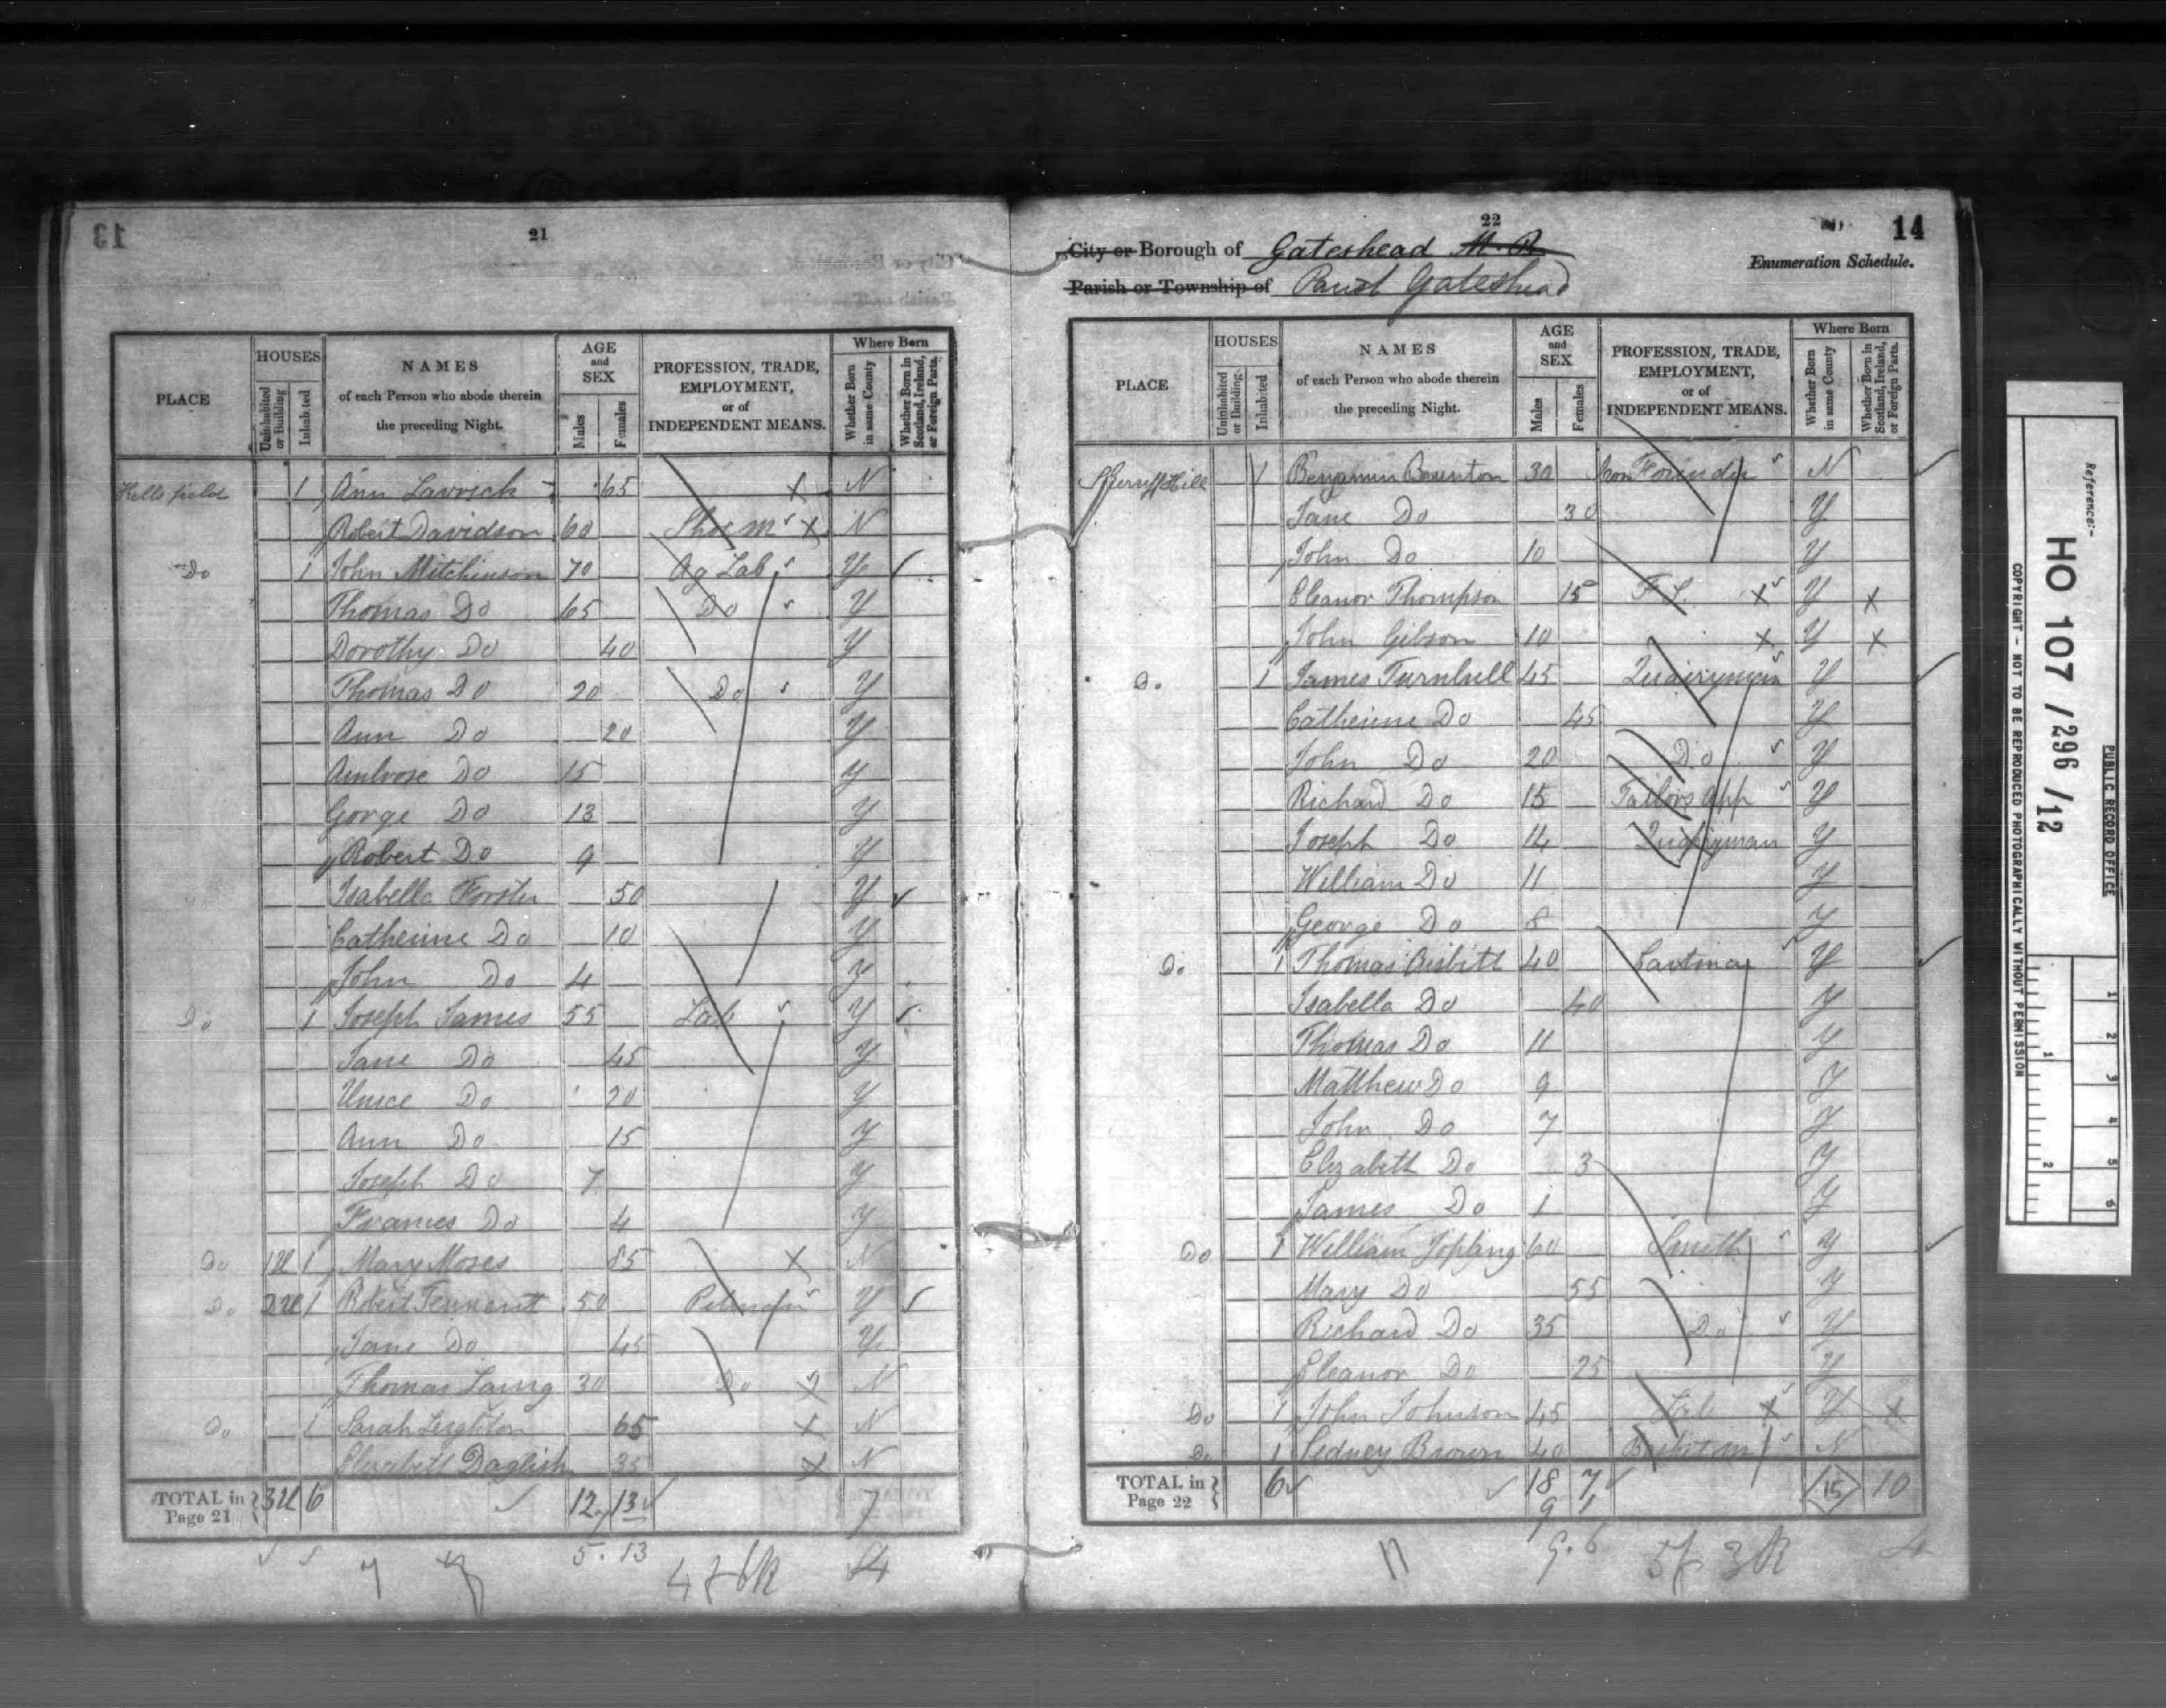 13
21
PLACE
HOUSES
Uninhabited or Building
Inhabited
NAMES
of each Person who abode therein
the preceding Night.
AGE
and
SEX
Males
Females
PROFESSION, TRADE,
EMPLOYMENT,
or of
INDEPENDENT MEANS.
Where Born
Whether Born in same County
Whether Born in Scotland, Ireland, or Foreign Parts.
1 Ann 65 N
Robert Davidson 60 Shoe m N
Do 1 John Mitchinson 70 Ag Lab Y
Thomas Do 65 Do Y
Dorothy Do 40 Y
Thomas Do 20 Do Y
Ann Do 20 Y
Ambrose Do 15 Y
Gorge Do 13 Y
Robert Do 9 Y
Isabella Forster 50 Y
Catherine Do 10 Y
John Do 4 Y
Do 1 Joseph James 55 Lab Y
Jane Do 45 Y
Unice Do 20 Y
Ann Do 15 Y
Joseph Do 7 Y
Frances Do 4 Y
Do 1U 1 Mary Moses 85 N
Do 2U 1 Robert Tennent 50 Y
Jane Do 45 Y
Thomas Laing 30 Do N
Do 1 Sarah Leighton 65 N
Elizabeth Daglish 35 N
TOTAL in Page 21 3U 6 12 13 7
5. 13
22
14
City or Borough of Gateshead M. B
Parish or Township of Parish Gateshead
Enumeration Schedule.
PLACE
HOUSES
Uninhabited or Building
Inhabited
NAMES
of each Person who abode therein
the preceding Night.
AGE
and
SEX
Males
Females
PROFESSION, TRADE,
EMPLOYMENT,
or of
INDEPENDENT MEANS.
Where Born
Whether Born in same County
Whether Born in Scotland, Ireland, or Foreign Parts.
Sherriff Hill 1 Benjamin 30 Iron Founder N
Jane Do 30 Y
John Do 10 Y
Eleanor Thompson 15 F S. Y
John Gibson 10 Y
Do 1 James Turnbull 45 Quarryman Y
Catherine Do 45 Y
John Do 20 Do Y
Richard Do 15 Tailors App Y
Joseph Do 14 Quarryman Y
William Do 11 Y
George Do 8 Y
Do 1 Thomas Nisbitt 40 Cartman Y
Isabella Do 40 Y
Thomas Do 11 Y
Matthew Do 9 Y
John Do 7 Y
Elizabeth Do 3 Y
James Do 1 Y
Do 1 William Jopling 60 Smith Y
Mary Do 55 Y
Richard Do 35 Do Y
Eleanor Do 25 Y
Do 1 John Johnson 45 Lab Y
Do 1 Sedney Brown 40 Basket m N
TOTAL in Page 22 6 18 7 15 10
9 1
9. 6
Reference:-
HO 107 / 296 / 12
PUBLIC RECORD OFFICE
COPYRIGHT - NOT TO BE REPRODUCED PHOTOGRAPHICALLY WITHOUT PERMISSION
1 2 3 4 5 6
1 2